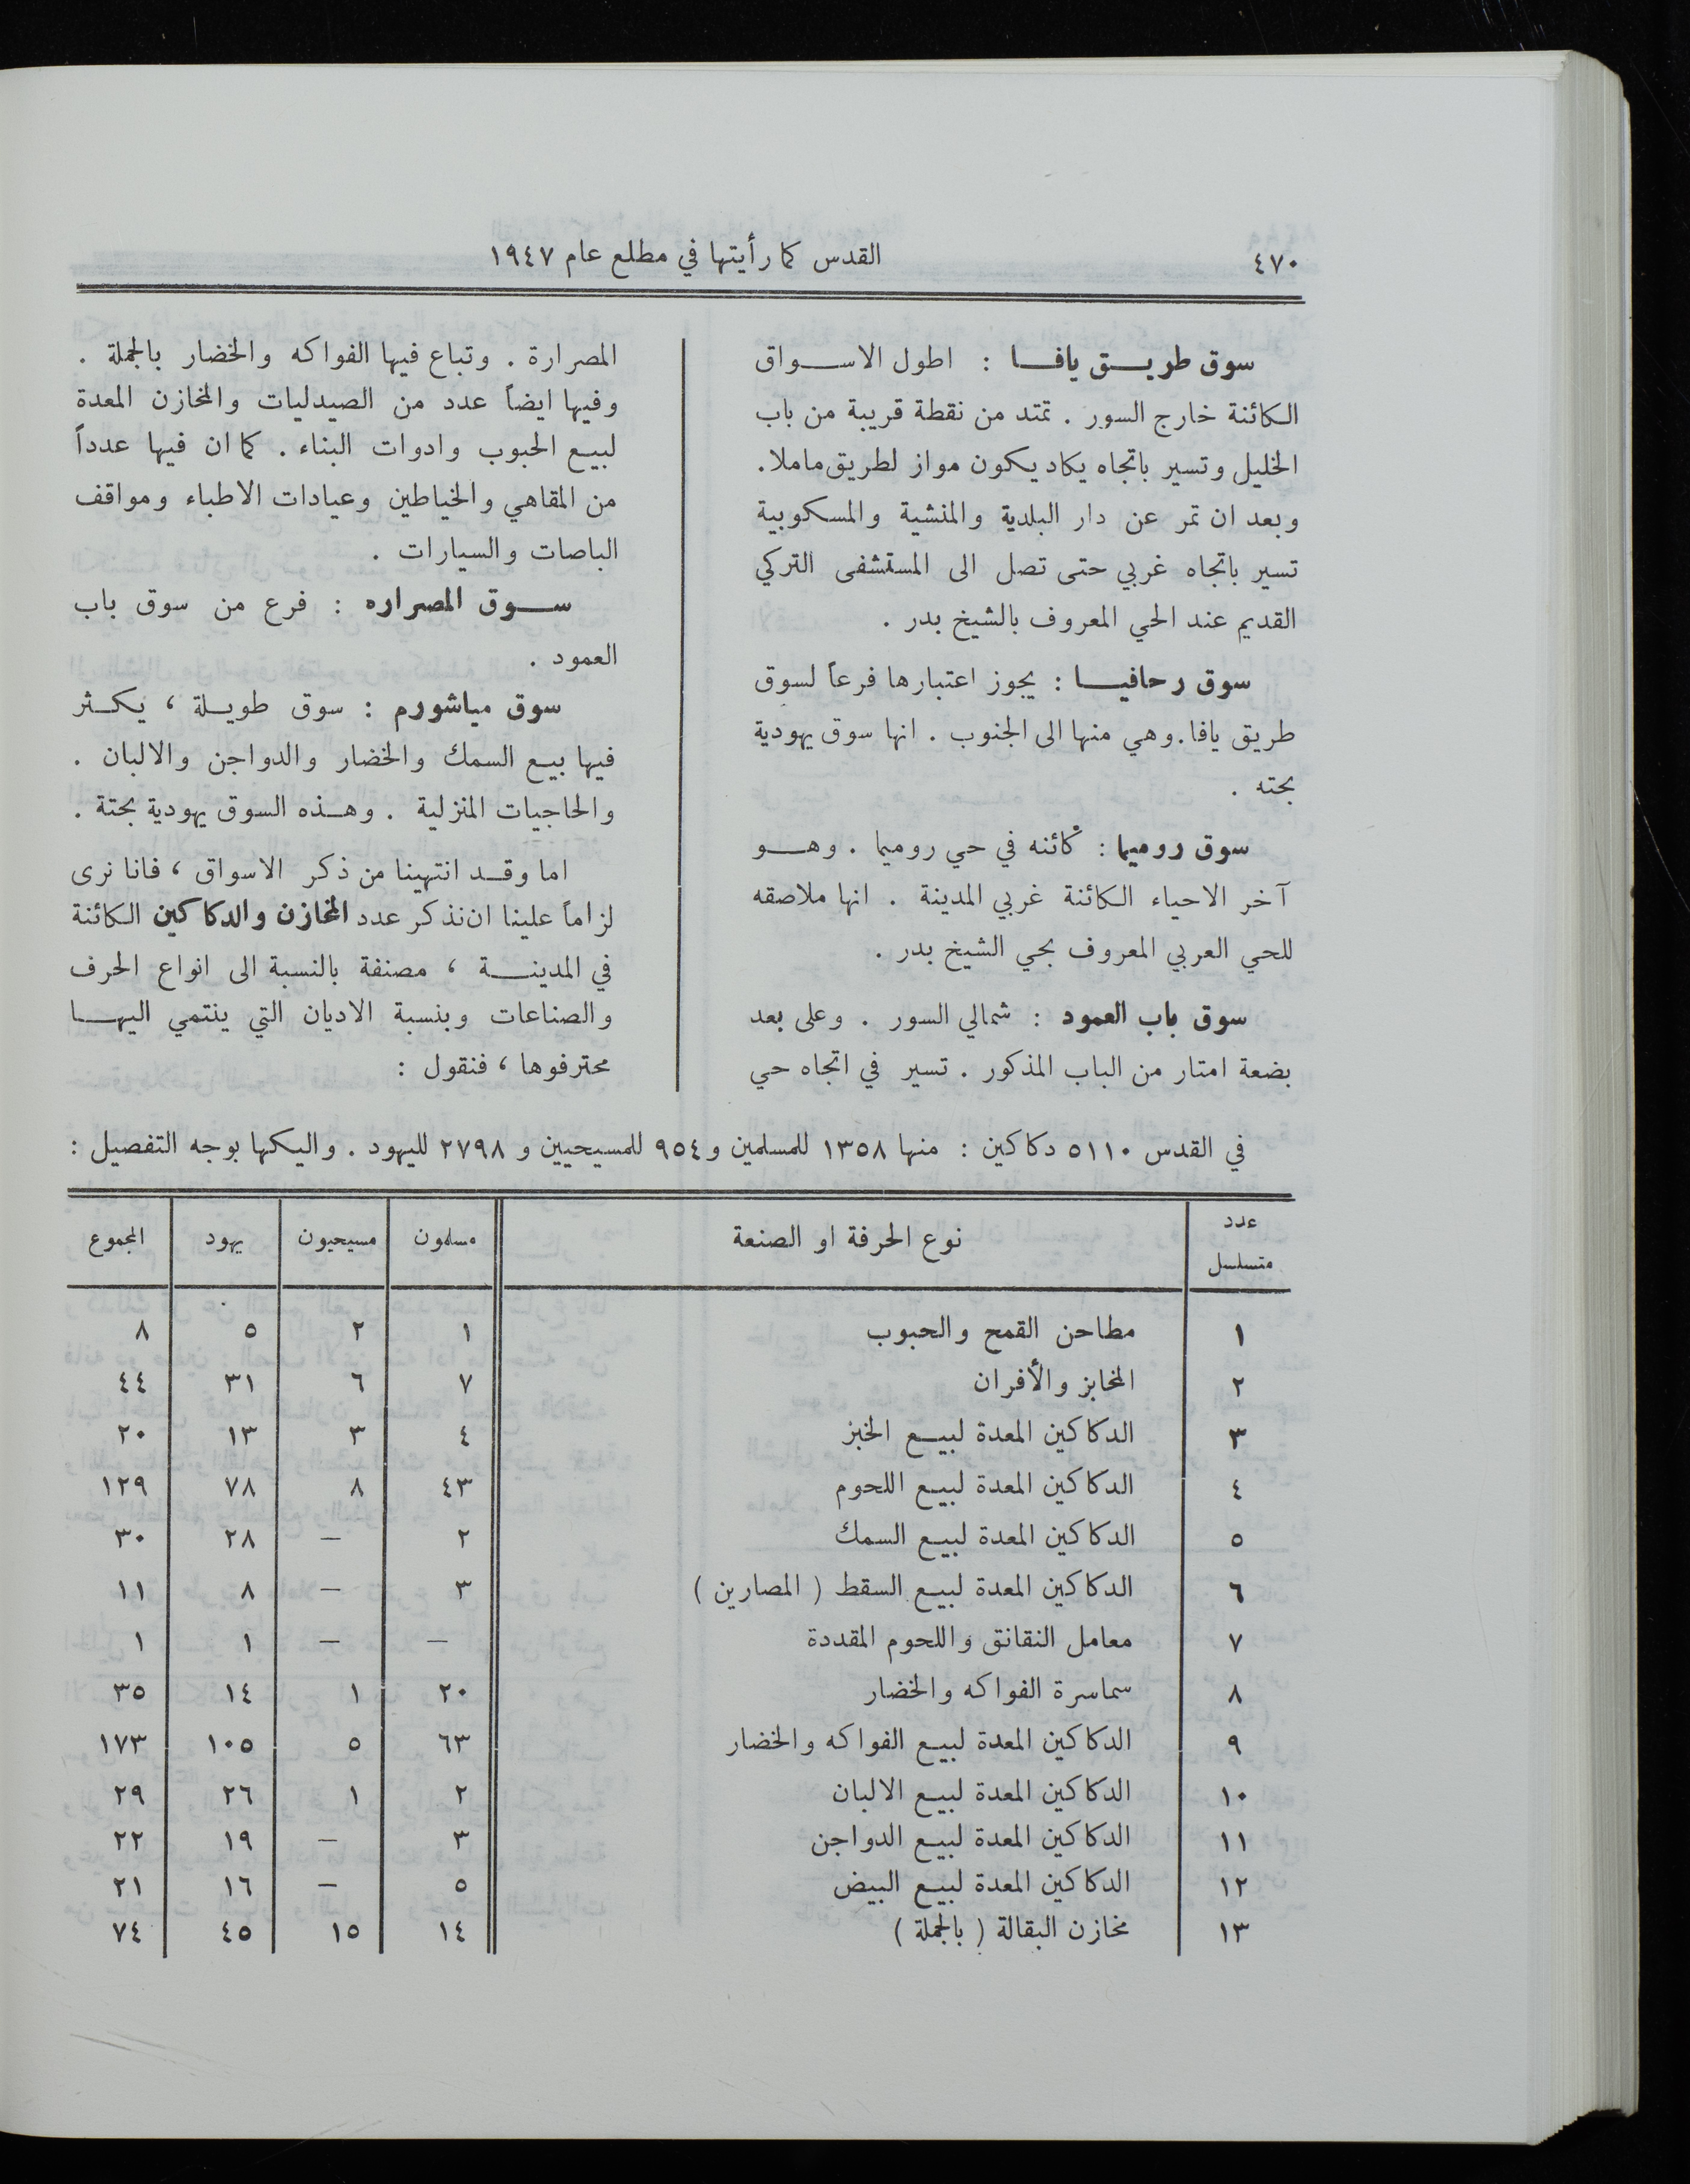 ٤٧٠
القدس كما رأيتها في مطلع عام ١٩٤٧
سوق طريـق يافـا : اطول الاسـواق
الكائنة خارج السور . تمتد من نقطة قريبة من باب
الخليل وتسير باتجاه يكاد يكون مواز لطريق ماملا .
وبعد ان تمر عن دار البلدية والمنشية والمسكوبية
تسير باتجاه غربي حتى تصل الى المستشفى التركي
القديم عند الحي المعروف بالشيخ بدر .
سوق رحافيـا : يجوز اعتبارها فرعاً لسوق
طريق يافا . وهي منها الى الجنوب . انها سوق يهودية
بحته .
سوق روميما : كائنه في حي روميما . وهـو
آخر الاحياء الكائنة غربي المدينة . انها ملاصقه
للحي العربي المعروف بحي الشيخ بدر .
سوق باب العمود : شمالي السور . وعلى بعد
بضعة امتار من الباب المذكور . تسير في اتجاه حي
المصرارة . وتباع فيها الفواكه والخضار بالجملة .
وفيها ايضاً عدد من الصيدليات والمخازن المعدة
لبيع الحبوب وادوات البناء . كما ان فيها عدداً
من المقاهي والخياطين وعيادات الاطباء ومواقف
الباصات والسيارات .
سـوق المصراره : فرع من سوق باب
العمود .
سوق مياشورم : سوق طويلة ، يكثر
فيها بيع السمك والخضار والدواجن والالبان .
والحاجيات المنزلية . وهـذه السوق يهودية بحتة .
اما وقـد انتهينا من ذكر الاسواق ، فانا نرى
لزاماً علينا ان نذكر عدد المخازن والدكاكين الكائنة
في المدينـة ، مصنفة بالنسبة الى انواع الحرف
والصناعات وبنسبة الاديان التي ينتمي اليهـا
محترفوها ، فنقول :
في القدس ٥١١٠ دكاكين : منها ١٣٥٨ للمسلمين و ٩٥٤ للمسيحيين و ٢٧٩٨ لليهود . واليكها بوجه التفصيل :
عدد متسلسل | نوع الحرفة او الصنعة | مسلمون | مسيحيون | يهود | المجموع
١ | مطاحن القمح والحبوب | ١ | ٢ | ٥ | ٨
٢ | المخابز والأفران | ٧ | ٦ | ٣١ | ٤٤
٣ | الدكاكين المعدة لبيع الخبز | ٤ | ٣ | ١٣ | ٢٠
٤ | الدكاكين المعدة لبيع اللحوم | ٤٣ | ٨ | ٧٨ | ١٢٩
٥ | الدكاكين المعدة لبيع السمك | ٢ | — | ٢٨ | ٣٠
٦ | الدكاكين المعدة لبيع السقط ( المصارين ) | ٣ | — | ٨ | ١١
٧ | معامل النقانق واللحوم المقددة | — | — | ١ | ١
٨ | سماسرة الفواكه والخضار | ٢٠ | ١ | ١٤ | ٣٥
٩ | الدكاكين المعدة لبيع الفواكه والخضار | ٦٣ | ٥ | ١٠٥ | ١٧٣
١٠ | الدكاكين المعدة لبيع الالبان | ٢ | ١ | ٢٦ | ٢٩
١١ | الدكاكين المعدة لبيع الدواجن | ٣ | — | ١٩ | ٢٢
١٢ | الدكاكين المعدة لبيع البيض | ٥ | — | ١٦ | ٢١
١٣ | مخازن البقالة ( بالجملة ) | ١٤ | ١٥ | ٤٥ | ٧٤